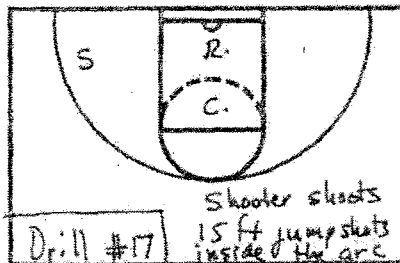 R.
S
C.
Shooter shoots
15 ft jumpshots
inside the arc
Drill #17